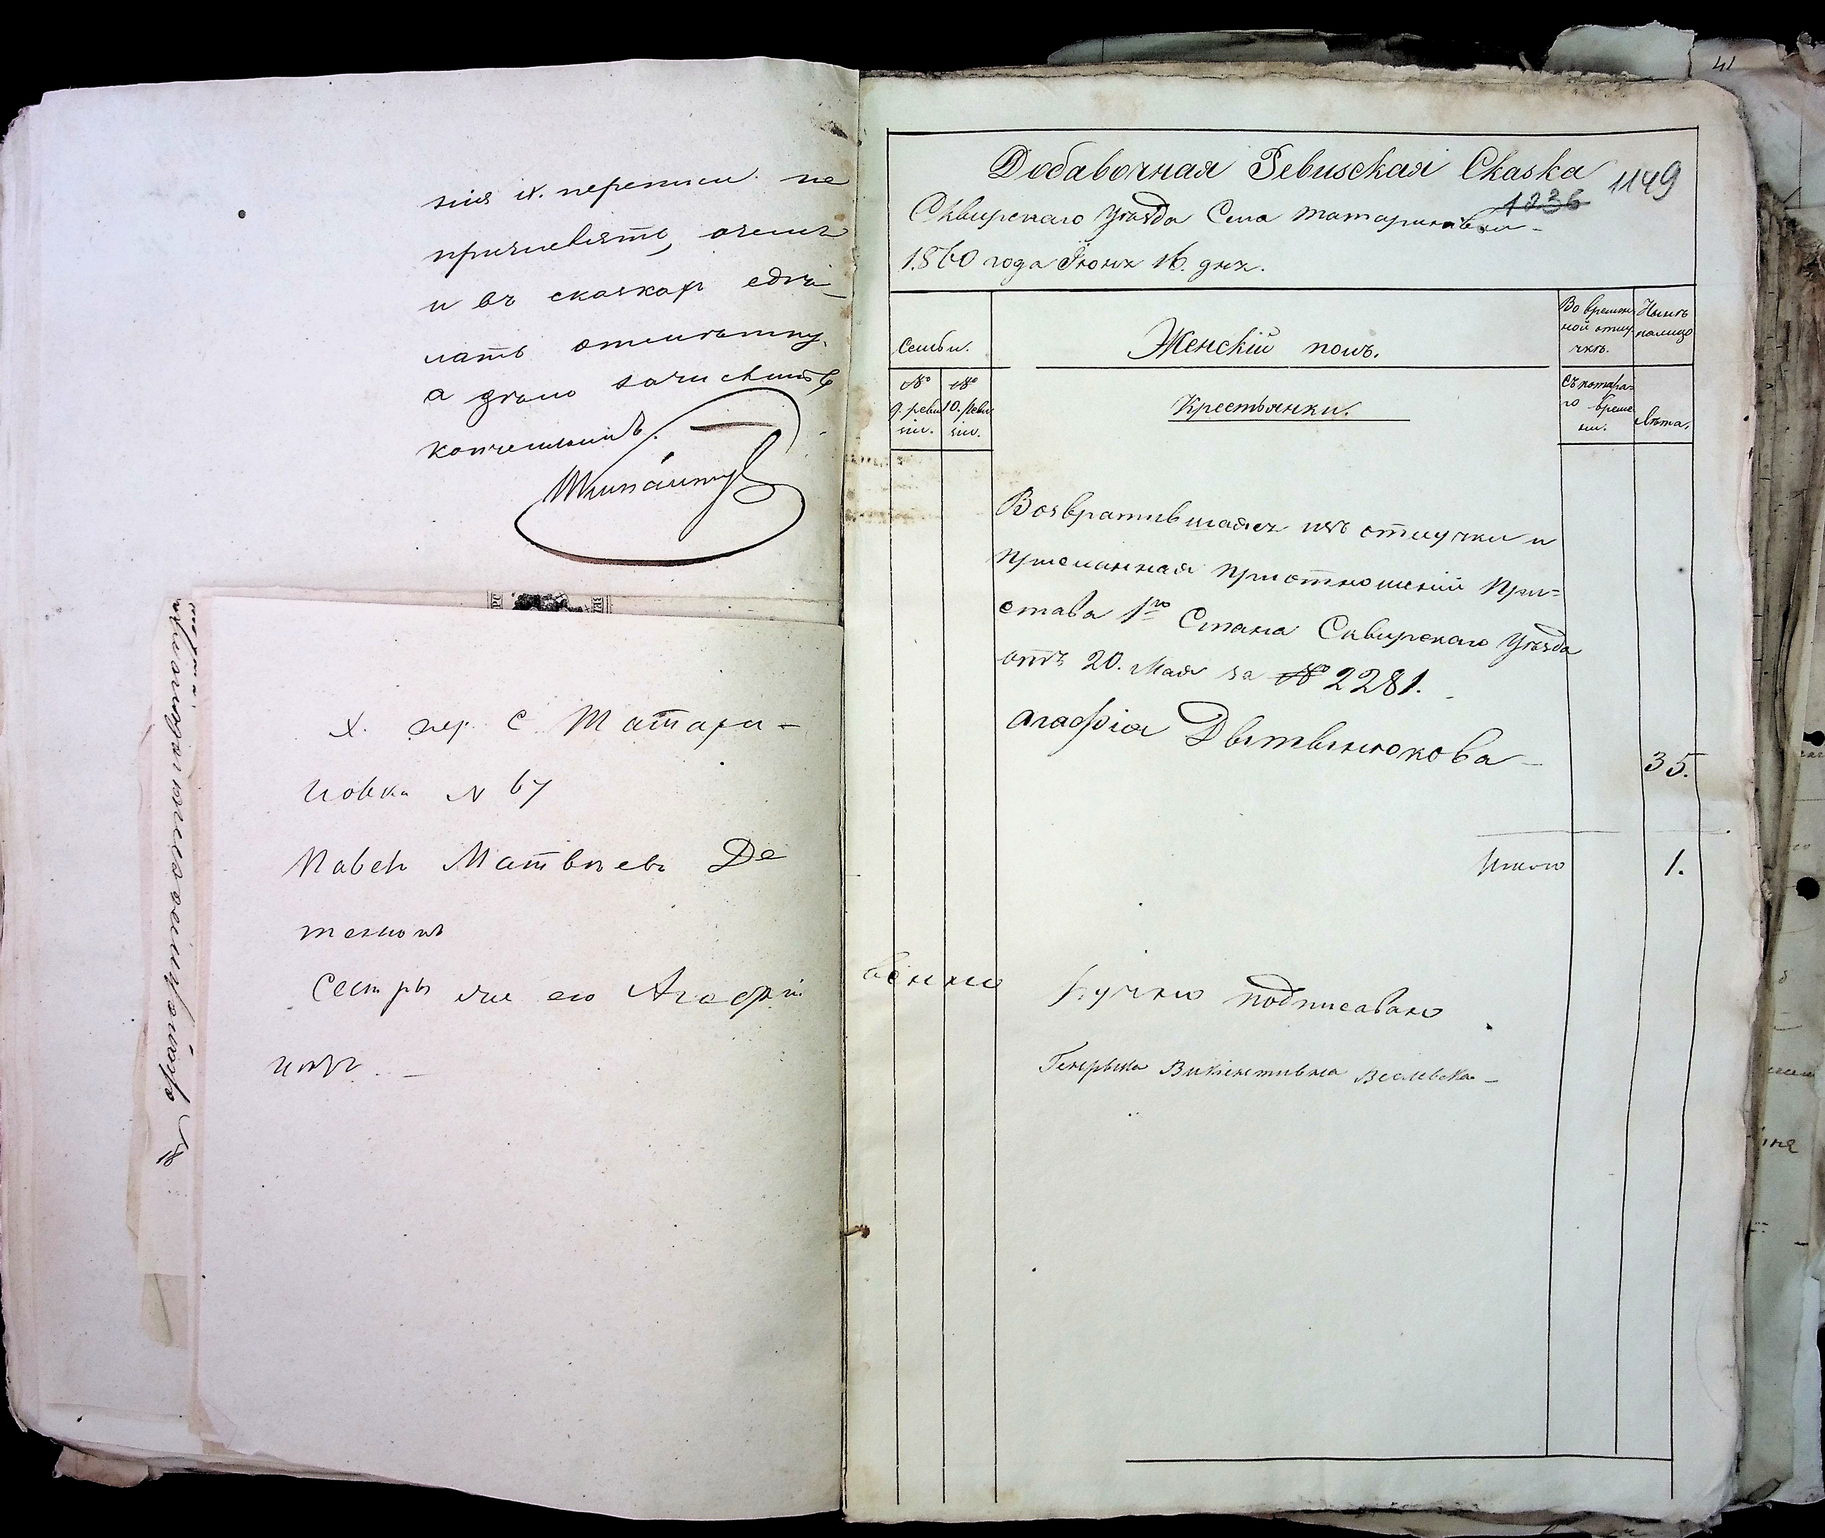 нія их. переписи. не
причислять,
и въ сказках сдѣ-
лать отмѣтку.
а дѣло зачислить
конченнымъ.
х. пер. с. Татари-
новка N 67
Павелъ Матвѣевъ Де
тенюкъ
Сестры же его Агафіи
нѣтъ. -
41
Добавочная Ревизская Сказка
1149
1236
Сквирскаго уѣзда Села Татариновки-
1860 года Іюня 16. дня.
Семьи.
Женскій полъ.
Во времен-
ной отлу-
чкѣ.
Нынѣ
налицо
№
9. реви
зіи.
№
10. реви
зіи.
Крестьянки.
Съ котора-
го време
ни.
лѣта.
Возвратившаяся изъ отлучки и
присланная при отношеніи При=
става 1го Стана Сквирскаго уѣзда
отъ 20. Мая за № 2281.
Агафія Дытынюкова -
35.
Итого
1.
венно ручно подписавано
Викентивна